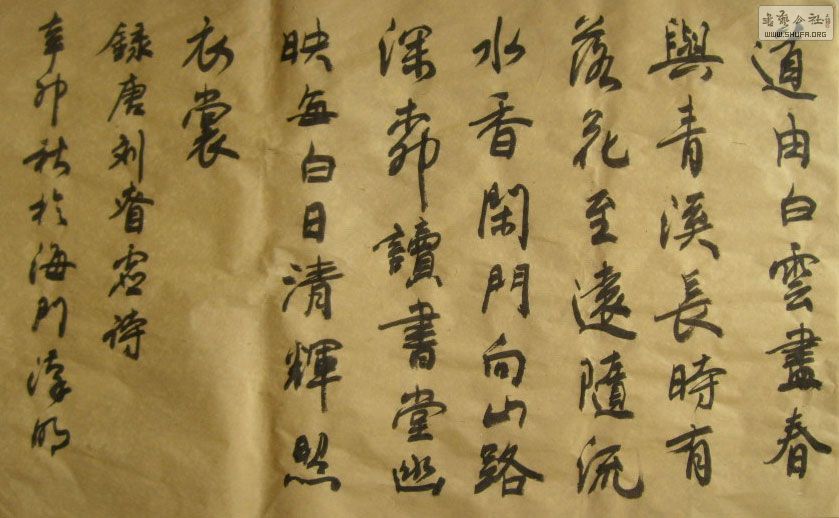 書藝公社
WWW.SHUFA.ORG
道由白雲盡春
與青溪長時有
落花至遠隨流
水香閑門向山路
深柳讀書堂幽
映每白日清輝照
衣裳
録唐刘昚虚诗
辛卯秋於海门淳明